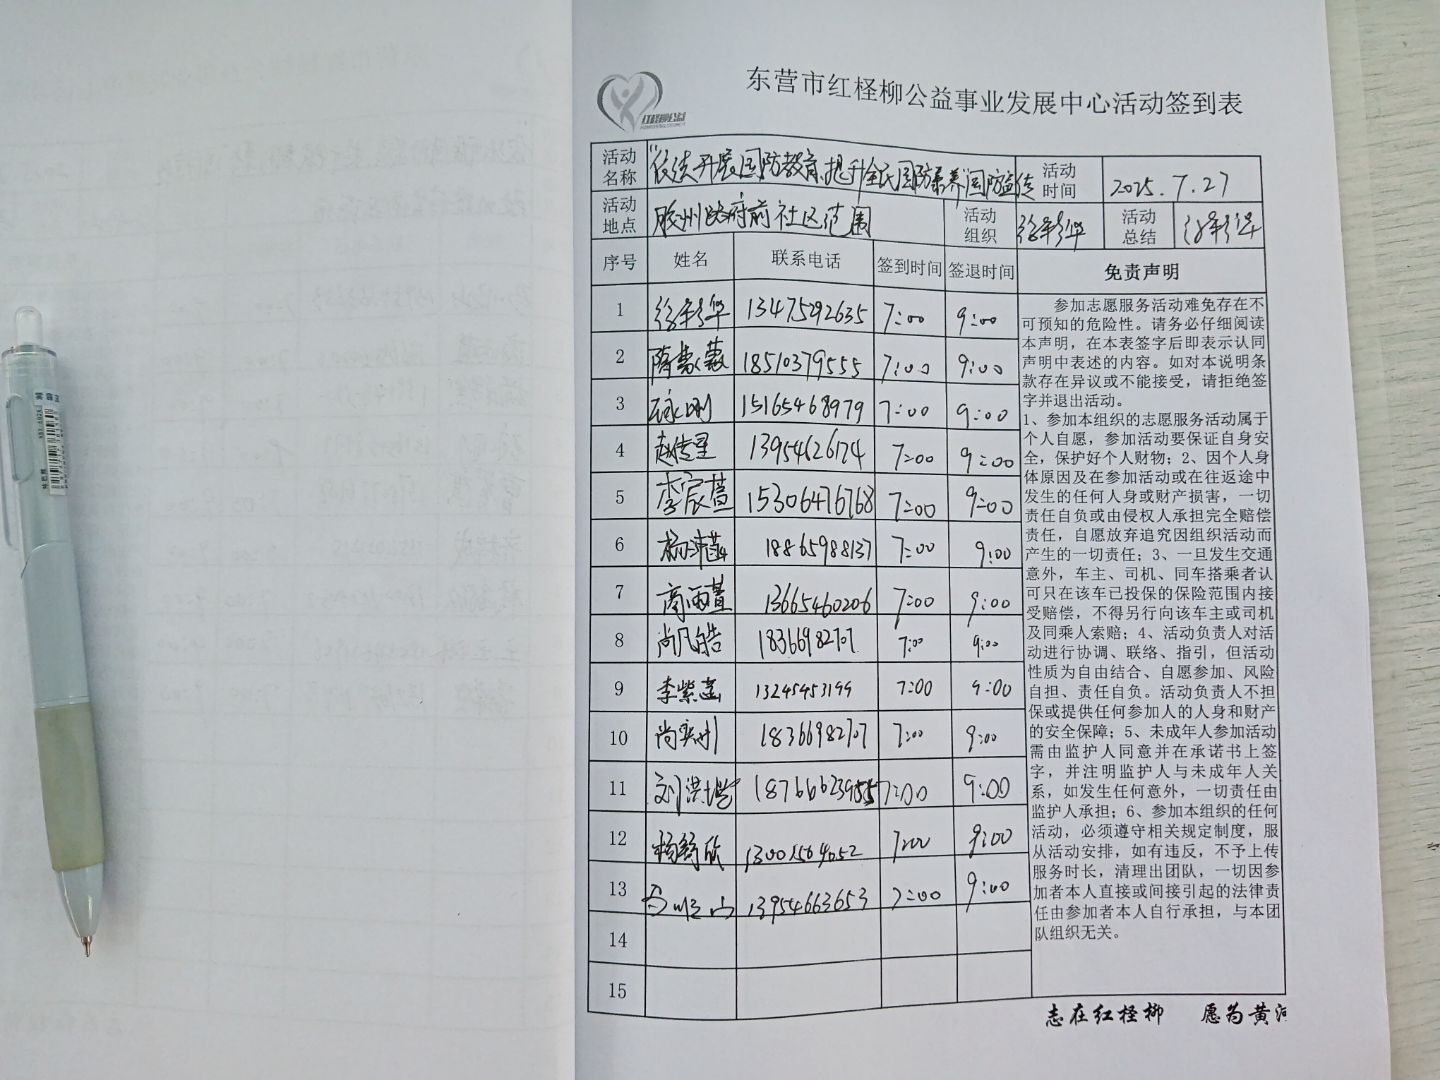 东营市红柽柳公益事业发展中心活动签到表
红柽柳公益
活动名称 "依法开展国防教育,提升全民国防素养"国防宣传 活动时间 2025.7.27
活动地点 胶州政府前社区范围 活动组织 徐彩华 活动总结 徐彩华
序号 姓名 联系电话 签到时间 签退时间 免责声明
1 徐彩华 13475292635 7:00 9:00
2 隋 18510379555 7:00 9:00
3 15165468979 7:00 9:00
4 赵 13954626174 7:00 9:00
5 李宸萱 15306476768 7:00 9:00
6 杨 18865988137 7:00 9:00
7 高雨萱 13665460206 7:00 9:00
8 尚凡皓 18366982707 7:00 9:00
9 李紫菡 13245453199 7:00 9:00
10 尚 18366982707 7:00 9:00
11 刘洪 7:00 9:00
12 杨舒欣 13001564052 7:00 9:00
13 13954663653 7:00 9:00
14
15
参加志愿服务活动难免存在不
可预知的危险性。请务必仔细阅读
本声明,在本表签字后即表示认同
声明中表述的内容。如对本说明条
款存在异议或不能接受,请拒绝签
字并退出活动。
1、参加本组织的志愿服务活动属于
个人自愿,参加活动要保证自身安
全,保护好个人财物;2、因个人身
体原因及在参加活动或在往返途中
发生的任何人身或财产损害,一切
责任自负或由侵权人承担完全赔偿
责任,自愿放弃追究因组织活动而
产生的一切责任;3、一旦发生交通
意外,车主、司机、同车搭乘者认
可只在该车已投保的保险范围内接
受赔偿,不得另行向该车主或司机
及同乘人索赔;4、活动负责人对活
动进行协调、联络、指引,但活动
性质为自由结合、自愿参加、风险
自担、责任自负。活动负责人不担
保或提供任何参加人的人身和财产
的安全保障;5、未成年人参加活动
需由监护人同意并在承诺书上签
字,并注明监护人与未成年人关
系,如发生任何意外,一切责任由
监护人承担;6、参加本组织的任何
活动,必须遵守相关规定制度,服
从活动安排,如有违反,不予上传
服务时长,清理出团队,一切因参
加者本人直接或间接引起的法律责
任由参加者本人自行承担,与本团
队组织无关。
志在红柽柳 愿为黄河